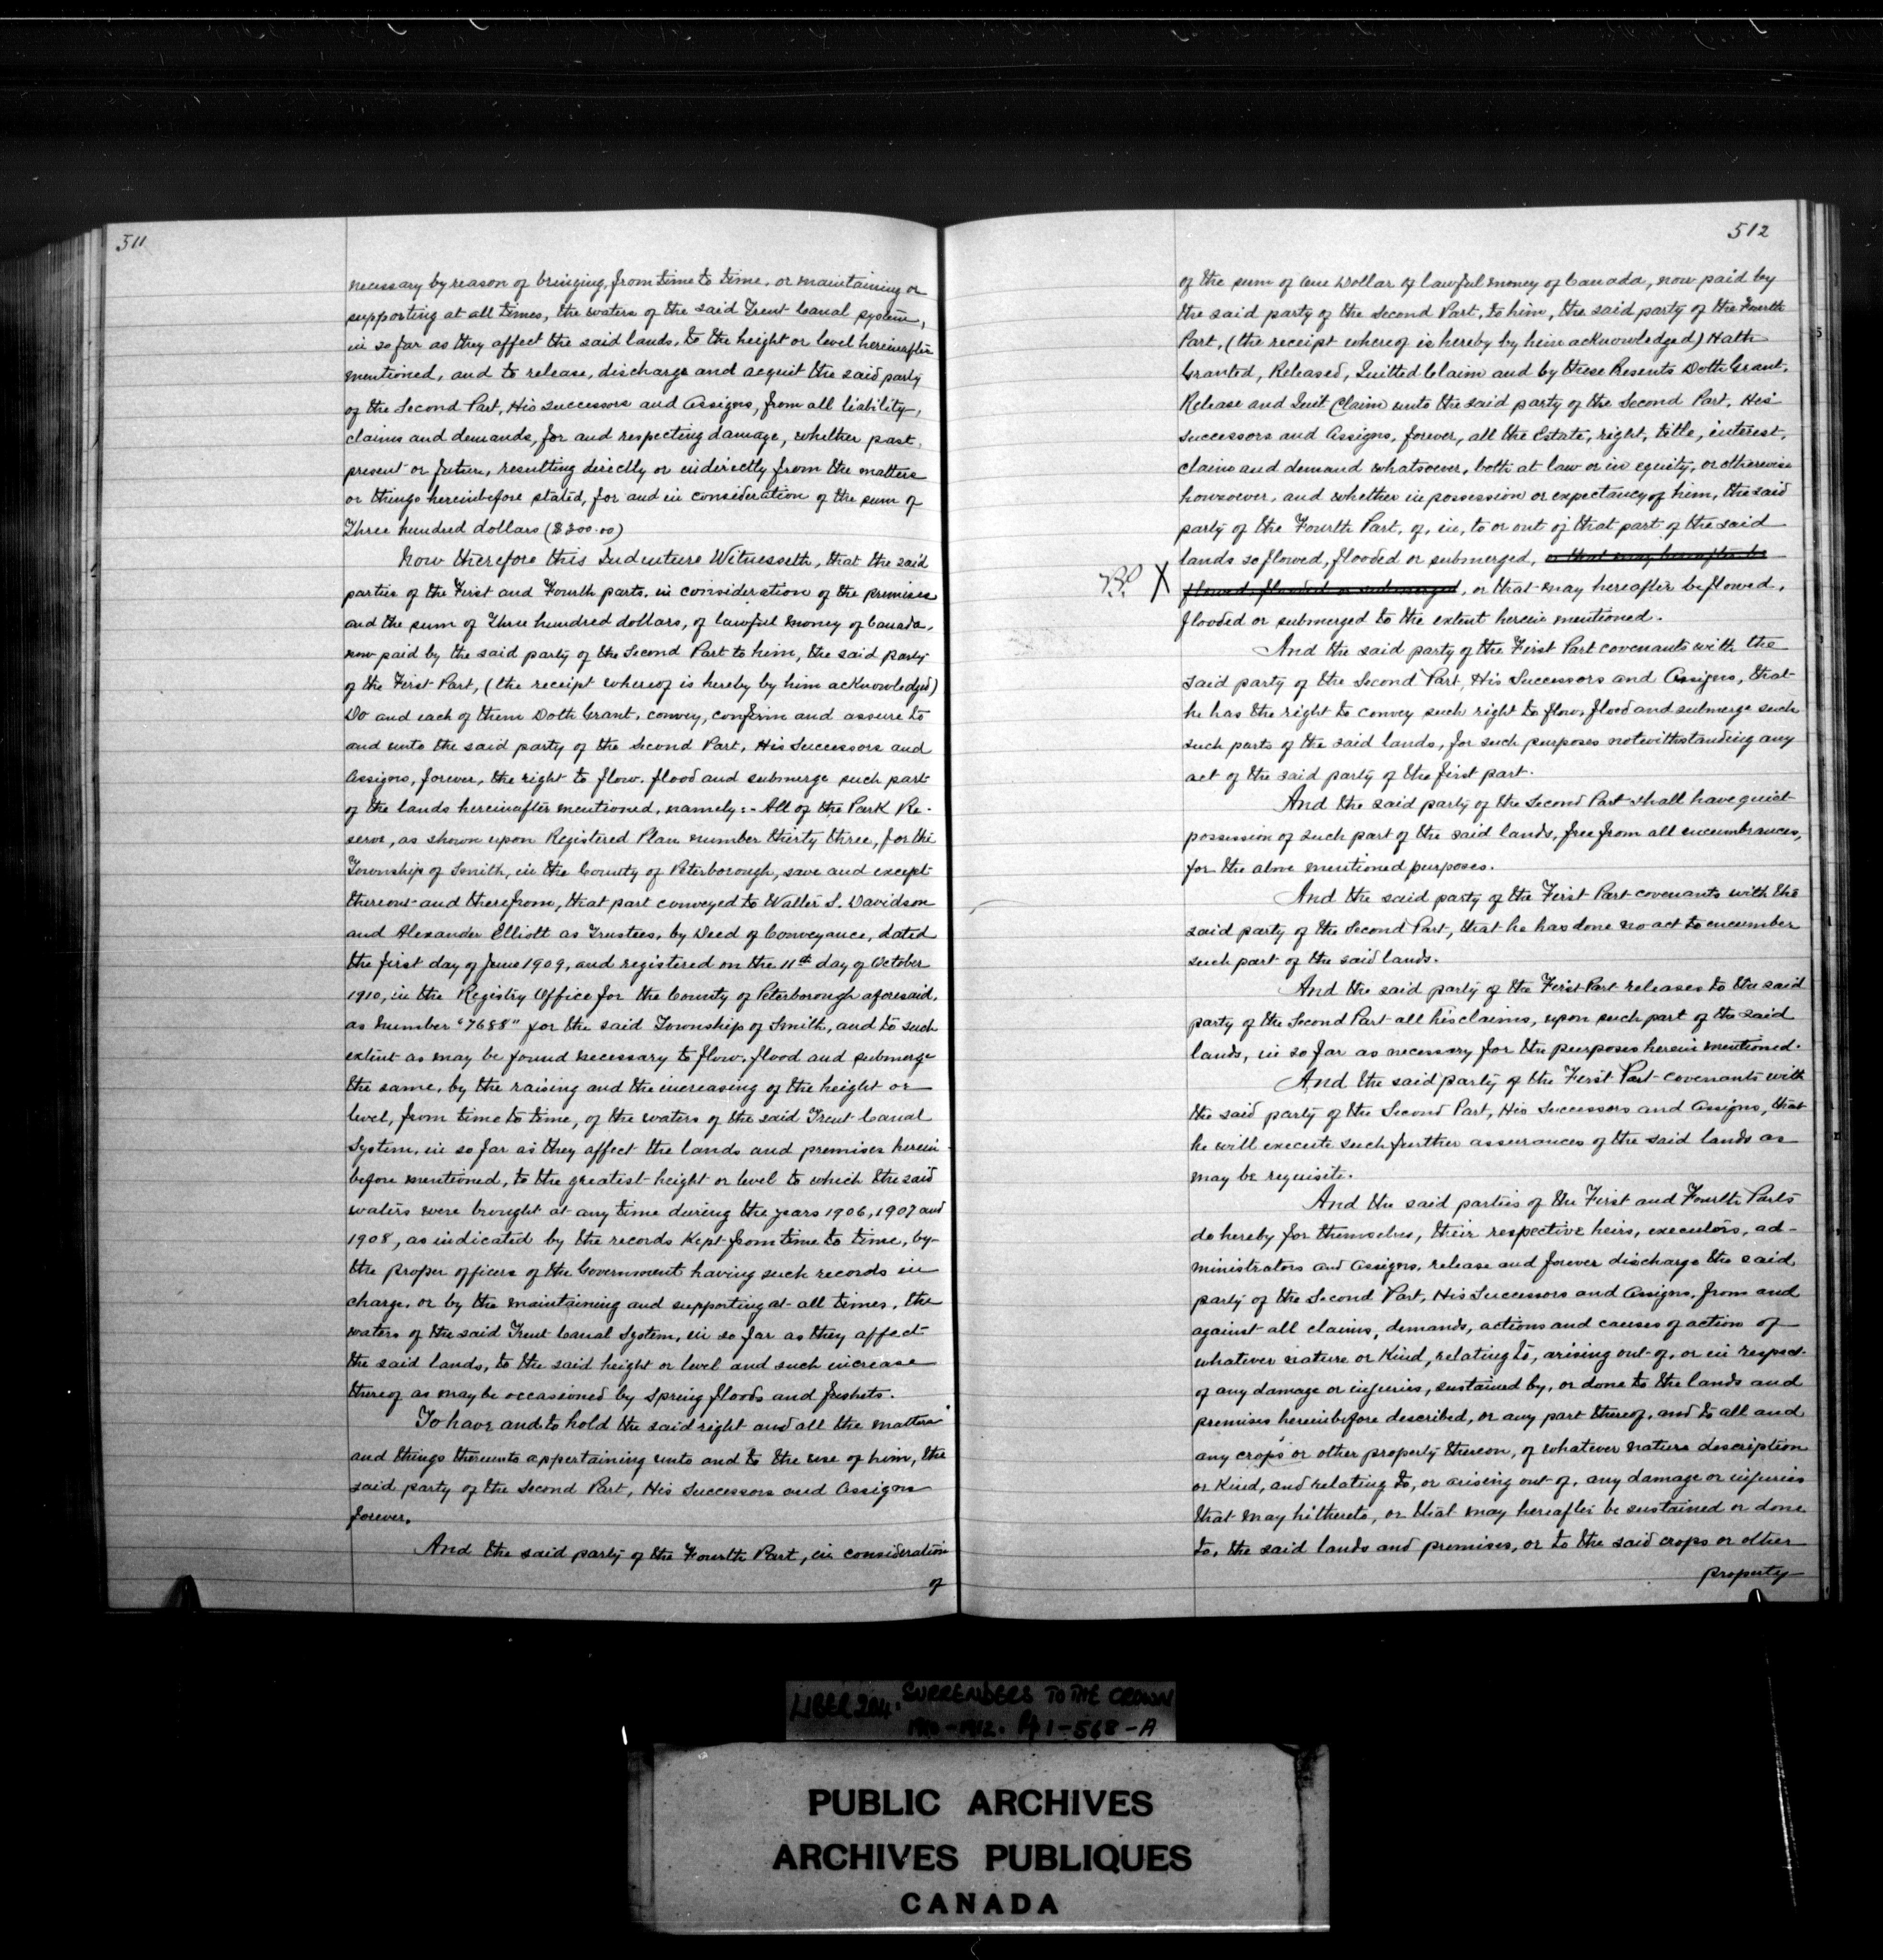 511
necessary by reason of bringing, from time to time, or maintaining or
supporting at all times, the waters of the said Trent Canal system,
in so far as they affect the said lands, to the height or level hereinafter
mentioned, and to release, discharge and acquit the said party
of the Second Part, His successors and Assigns, from all liability,
claims and demands, for and respecting damage, whether past,
present or future, resulting directly or indirectly from the matters
or things hereinbefore stated, for and in consideration of the sum of
Three hundred dollars ($300.00)
Now therefore this Indenture Witnesseth, that the said
parties of the First and Fourth parts, in consideration of the premises
and the sum of Three hundred dollars, of lawful money of Canada,
now paid by the said party of the Second Part to him, the said party
of the First Part, (the receipt whereof is hereby by him acknowledged)
Do and each of them Doth Grant, convey, confirm and assure to
and unto the said party of the Second Part, His Successors and
Assigns, forever, the right to flow, flood and submerge such part
of the lands hereinafter mentioned, namely:- All of the Park Re-
serve, as shown upon Registered Plan number thirty three, for the
Township of Smith, in the County of Peterborough, save and except
thereout and therefrom, that part conveyed to Walter S. Davidson
and Alexander Elliott as Trustees, by Deed of Conveyance, dated
the first day of June 1909, and registered on the 11th day of October
1910, in the Registry Office for the County of Peterborough aforesaid,
as number "7688" for the said Township of Smith, and to such
extent as may be found necessary to flow, flood and submerge
the same, by the raising and the increasing of the height or
level, from time to time, of the waters of the said Trent Canal
System, in so far as they affect the lands and premises herein
before mentioned, to the greatest height or level to which the said
waters were brought at any time during the years 1906, 1907 and
1908, as indicated by the records kept from time to time, by
the proper officers of the Government having such records in
charge, or by the maintaining and supporting at all times, the
waters of the said Trent Canal System, in so far as they affect
the said lands, to the said height or level and such increase
thereof as may be occasioned by Spring floods and freshets.
To have and to hold the said right and all the matters
and things thereunto appertaining unto and to the use of him, the
said party of the Second Part, His Successors and Assigns
forever.
And the said party of the Fourth Part, in consideration
of
512
of the sum of One Dollar of lawful money of Canada, now paid by
the said party of the Second Part, to him, the said party of the Fourth
Part, (the receipt whereof is hereby by him acknowledged) Hath
Granted, Released, Quitted Claim and by these Presents Doth Grant,
Release and Quit Claim unto the said party of the Second Part, His
Successors and Assigns, forever, all the Estate, right, title, interest,
claim and demand whatsoever, both at law or in equity, or otherwise
howsoever, and whether in possession or expectancy of him, the said
party of the Fourth Part, of, in, to or out of that part of the said
lands so flowed, flooded or submerged, or that may hereafter be
X flowed, flooded or submerged, or that may hereafter be flowed,
flooded or submerged to the extent herein mentioned.
And the said party of the First Part covenants with the
said party of the Second Part, His Successors and Assigns, that
he has the right to convey such right to flow, flood and submerge such
such parts of the said lands, for such purposes notwithstanding any
act of the said party of the first part.
And the said party of the Second Part shall have quiet
possession of such part of the said lands, free from all encumbrances,
for the above mentioned purposes.
And the said party of the First Part covenants with the
said party of the Second Part, that he has done no act to encumber
such part of the said lands.
And the said party of the First Part releases to the said
party of the Second Part all his claims, upon such part of the said
lands, in so far as necessary for the purposes herein mentioned.
And the said party of the First Part covenants with
the said party of the Second Part, His Successors and Assigns, that
he will execute such further assurances of the said lands as
may be requisite.
And the said parties of the First and Fourth Parts
do hereby for themselves, their respective heirs, executors, ad-
ministrators and Assigns, release and forever discharge the said
party of the Second Part, His Successors and Assigns, from and
against all claims, demands, actions and causes of action of
whatever nature or kind, relating to, arising out of, or in respect
of any damage or injuries, sustained by, or done to the lands and
premises hereinbefore described, or any part thereof, and to all and
any crops or other property thereon, of whatever nature description
or kind, and relating to, or arising out of, any damage or injuries
that may hitherto, or that may hereafter be sustained or done
to, the said lands and premises, or to the said crops or other
property
LIBER 204. SURRENDERS TO THE CROWN
1910-1912. Pp 1-568-A
PUBLIC ARCHIVES
ARCHIVES PUBLIQUES
CANADA